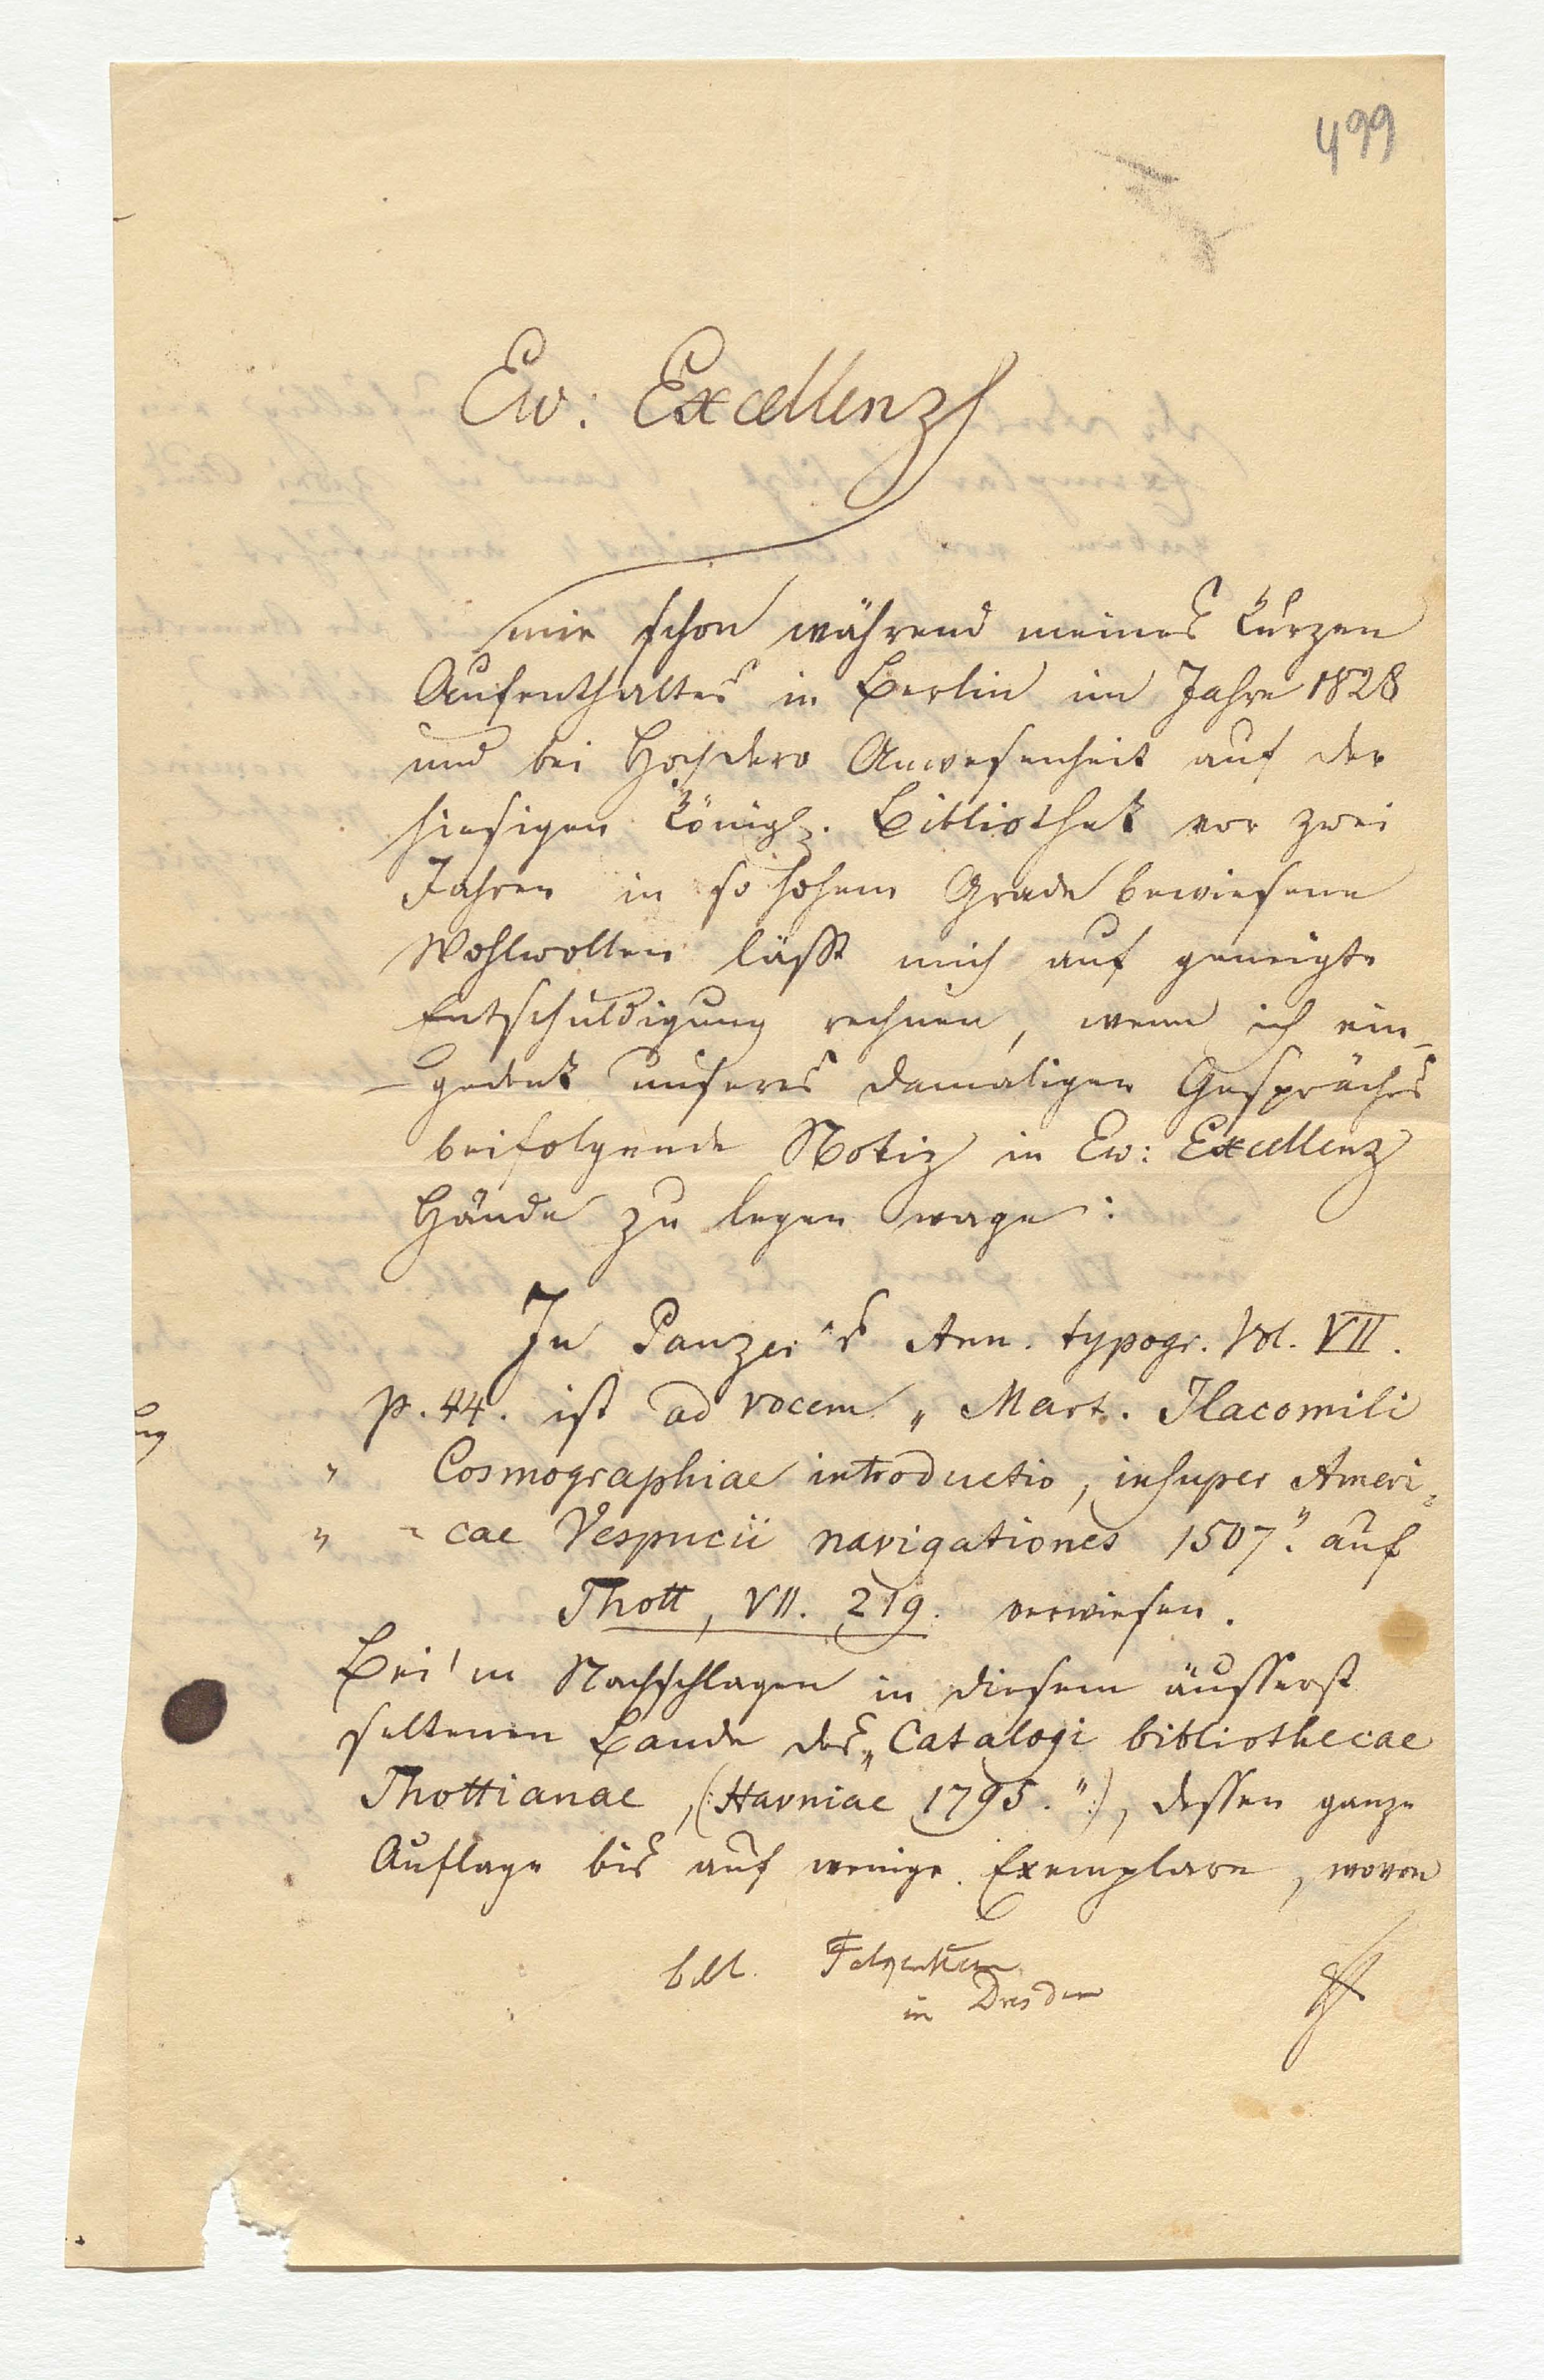 499
Ew: Excellenz
mir schon während meines kurzen
Aufenthaltes in Berlin im Jahre 1828
und bei Hochdero Anwesenheit auf der
hiesigen Königl. Bibliothek vor zwei
Jahren in so hohem Grade bewiesene
Wohlwollen läßt mich auf geneigte
Entschuldigung rechnen, wenn ich ein-
gedenk unseres damaligen Gespräches
beifolgende Notiz in Ew: Excellenz
Hände zu legen wage:
In Panzer's Ann. typogr. Vol. VII.
p. 44. ist ad vocem „Mart. Ilacomili
„ Cosmographiae introductio, insuper Ameri-
„ -cae Vespucii navigationes 1507." auf
Thott, VII. 219. verwiesen.
Bei'm Nachschlagen in diesem äusserst
seltenen Bande des „Catalogi bibliothecae
Thottianae, (:Havniae 1795.":), dessen ganze
Auflage bis auf wenige Exemplare, wovon
bibl. Falkenstein
in Dresden